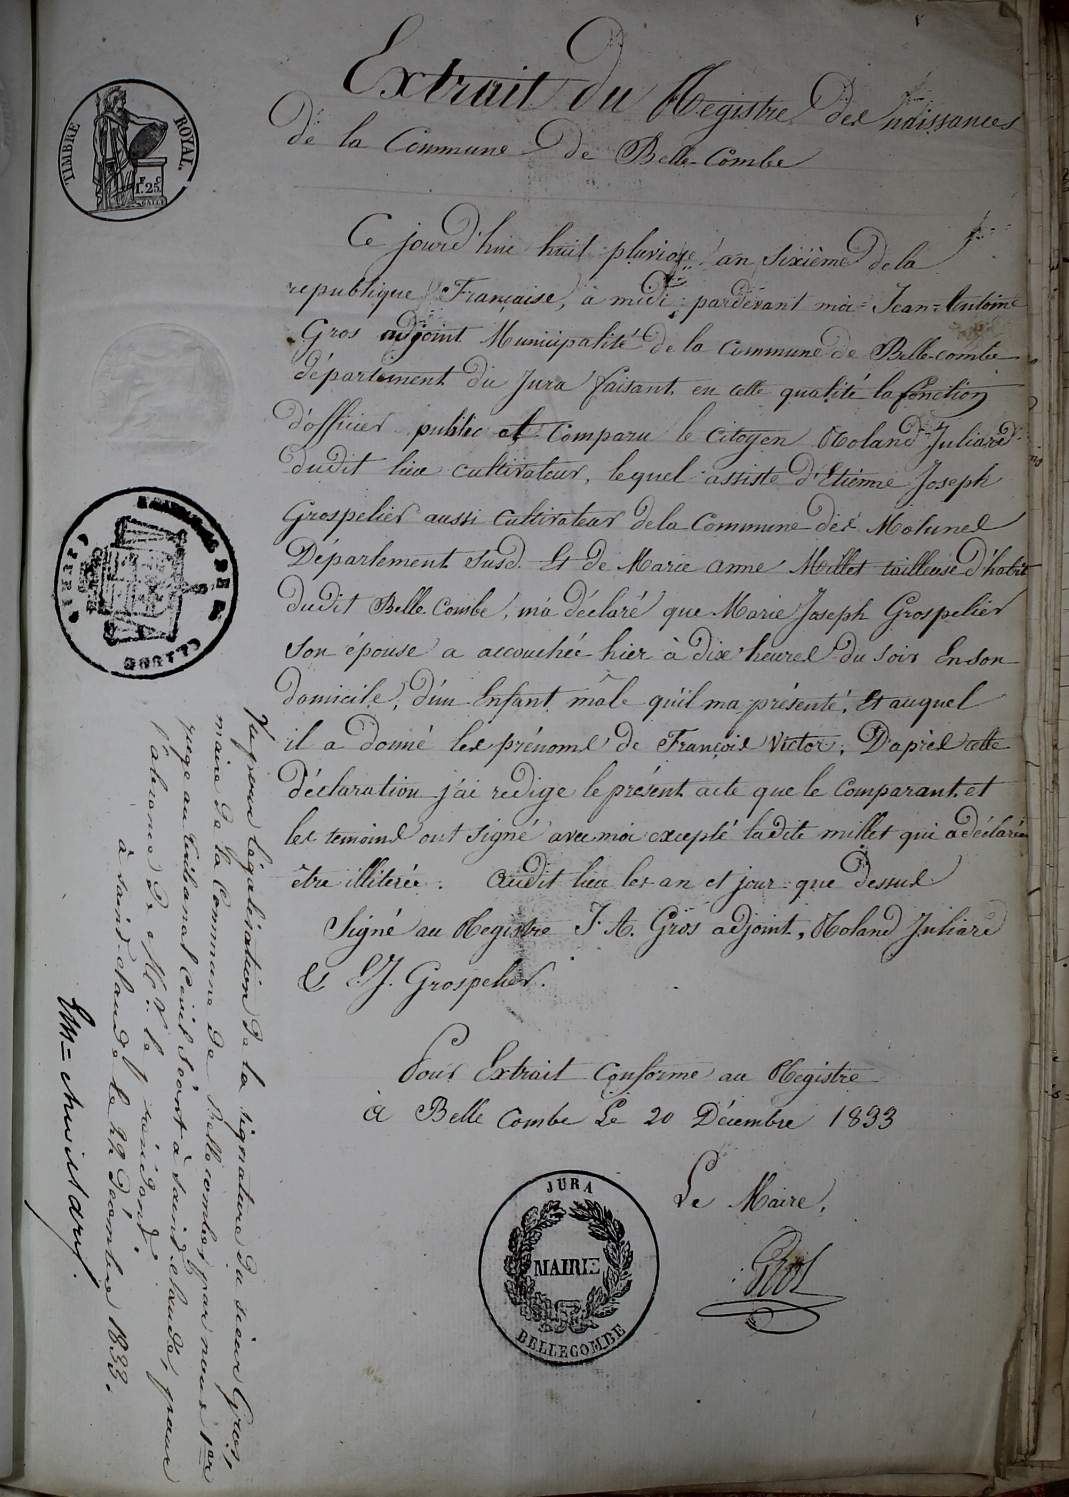 Extrait du Registre des naissances
de la Commune de Belle-Combe
Ce jourd'hui huit pluviose an sixième de la
republique Française, à midi; pardevant moi Jean-Antoine
Gros adjoint Municipalité de la Commune de Belle-combe
département du Jura faisant en cette qualité la fonction
d'officier public et Comparu le Citoyen Roland Juliard
dudit lieu cultivateur, lequel assisté d'Etienne Joseph
Grospelier aussi Cultivateur de la Commune des Molunes
Département susd. Et de Marie anne Millet tailleuse d'habit
dudit Belle Combe, m'a déclaré que Marie Joseph Grospelier
son épouse a accouchée hier à dix heures du soir En son
domicile, d'un Enfant mâle qu'il ma présenté, Et auquel
il a donné les prénoms de François Victor; D'après cette
déclaration j'ai redigé le présent acte que le Comparant et
les temoins ont signé avec moi excepté ladite millet qui a déclarée
être illiterée. Audit lieu les an et jour que dessus
Signé au Registre J. A. Gros adjoint, Roland Juliard
& E. J. Grospelier.
Pour Extrait Conforme au Registre
A Belle Combe Le 20 Décembre 1833
Le Maire,
Gros
TIMBRE ROYAL
1.25
JURA
MAIRIE
BELLECOMBE
Vu pour légalisation de la signature du sieur Gros,
maire de la Commune de Bellecombe, par nous
juge au tribunal Civil Séant à saint claude, pour
l'absence de Mr. le président
à saint claude le 22 Décembre 1833.